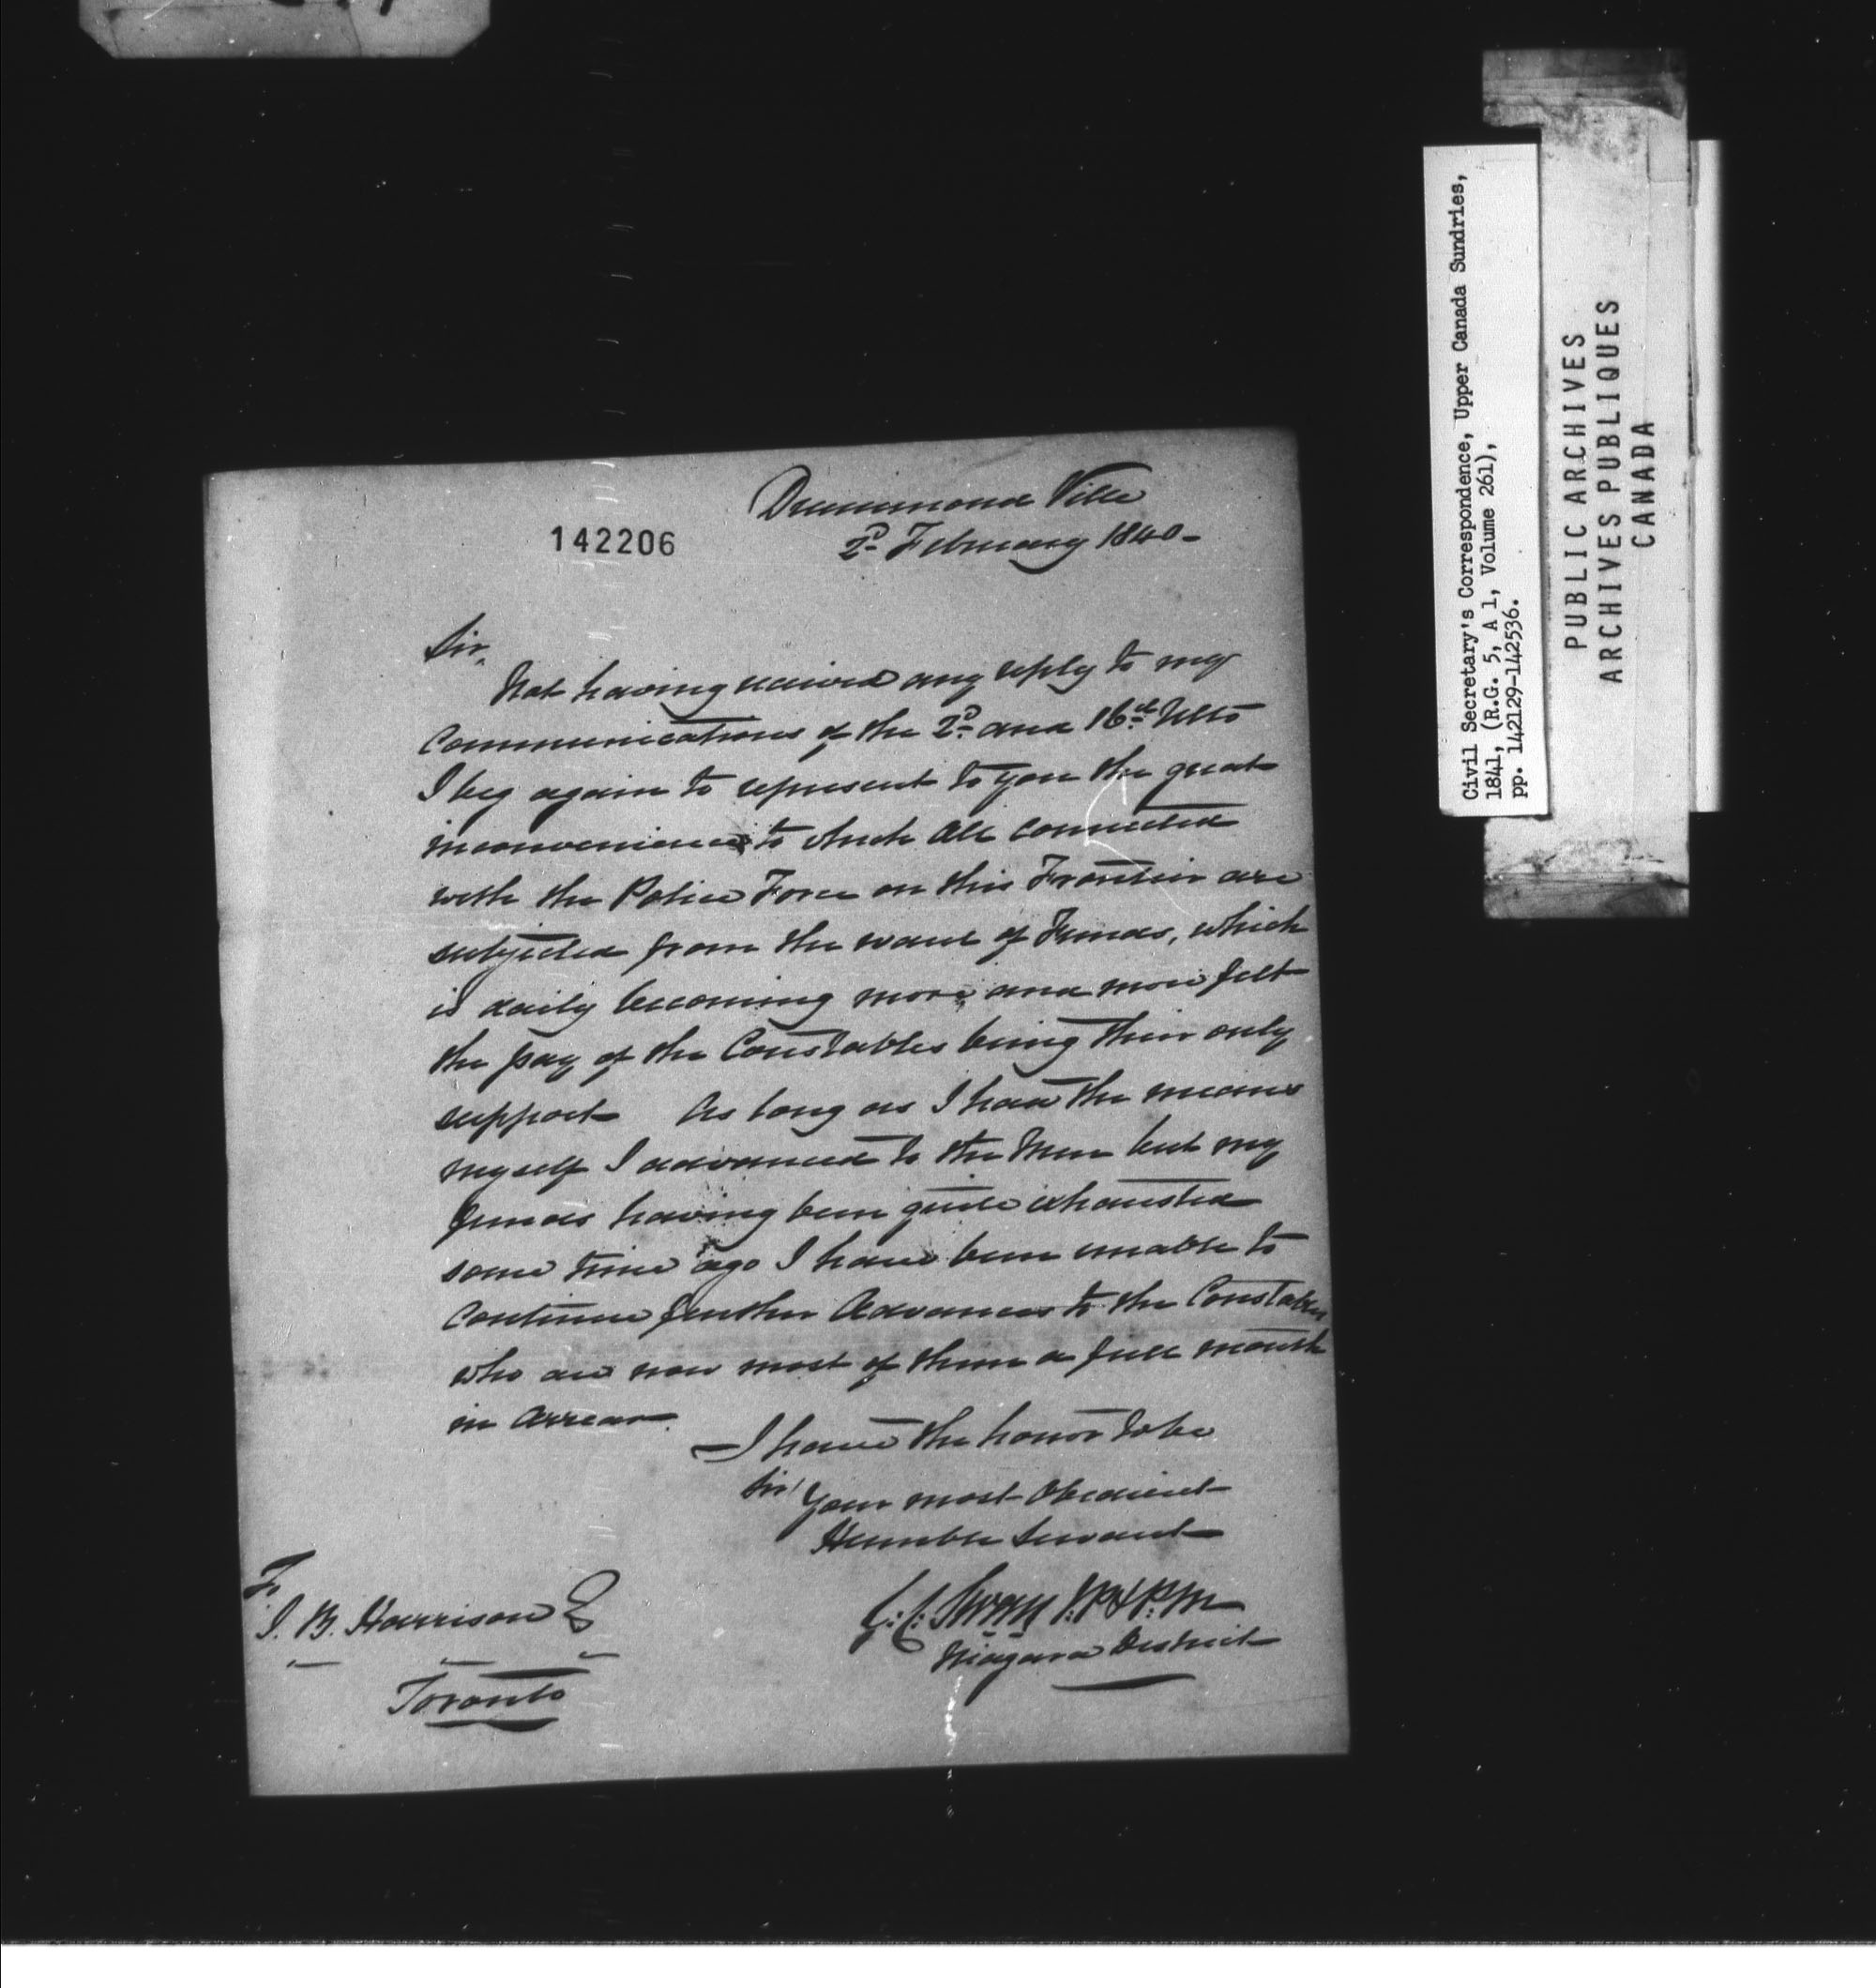 Drummond Ville
142206
2d. February 1840-
Sir,
Not having received any reply to my
Communications of the 2d. and 16th. Ulto
I beg again to represent to you the great
inconvenience to which all connected
with the Police Force on this Frontier are
subjected from the want of Funds, which
is daily becoming more and more felt
the pay of the Constables being their only
support As long as I had the means
myself I advanced to the Men but my
funds having been quite exhausted
some time ago I have been unable to
Continue further Advances to the Constables
who are now most of them a full month
in Arrear.
I have the honor to be
Sir
Your most Obedient
Humble Servant
G: C: Swan J.P & P: M
Niagara District
To
S. B. Harrison
Toronto
Civil Secretary's Correspondence, Upper Canada Sundries,
1841, (R.G. 5, A 1, Volume 261),
pp. 142129-142536.
PUBLIC ARCHIVES
ARCHIVES PUBLIQUES
CANADA